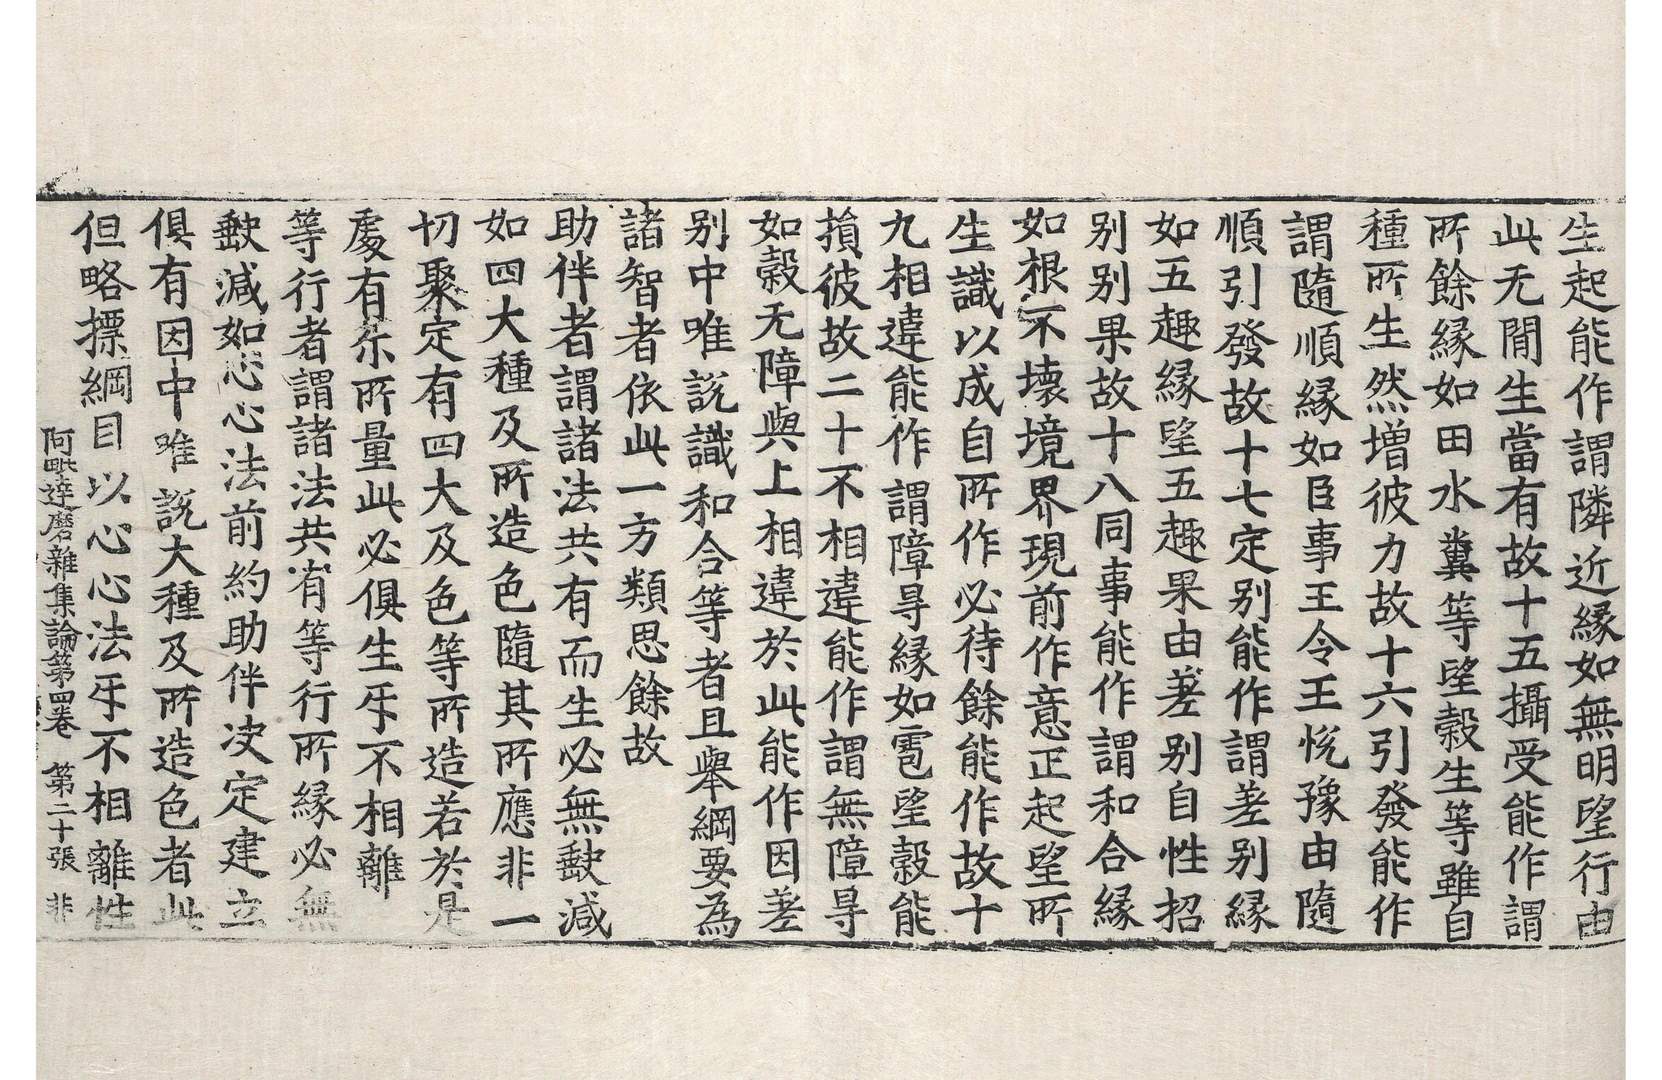 生起能作謂隣近縁如無明望行由
此无間生當有故十五攝受能作謂
所餘縁如田水糞等望榖生等雖自
種所生然增彼力故十六引發能作
謂隨順縁如臣事王令王悅豫由隨
順引發故十七定别能作謂差别縁
如五趣縁望五趣果由差别自性招
别别果故十八同事能作謂和合縁
如根不壞境界現前作意正起望所
生識以成自所作必待餘能作故十
九相違能作謂障㝵縁如雹望榖能
損彼故二十不相違能作謂無障㝵
如榖无障與上相違於此能作因差
别中唯説識和合等者且舉綱要為
諸智者依此一方類思餘故
助伴者謂諸法共有而生必無缺減
如四大種及所造色隨其所應非一
切聚定有四大及色等所造若於是
處有尒所量此必俱生㸦不相離
等行者謂諸法共有等行所縁必無
缺減如心心法前約助伴决定建立
俱有因中唯説大種及所造色者此
但略摽綱目以心心法㸦不相離性
阿毗達磨雜集論第四卷 第二十張 非